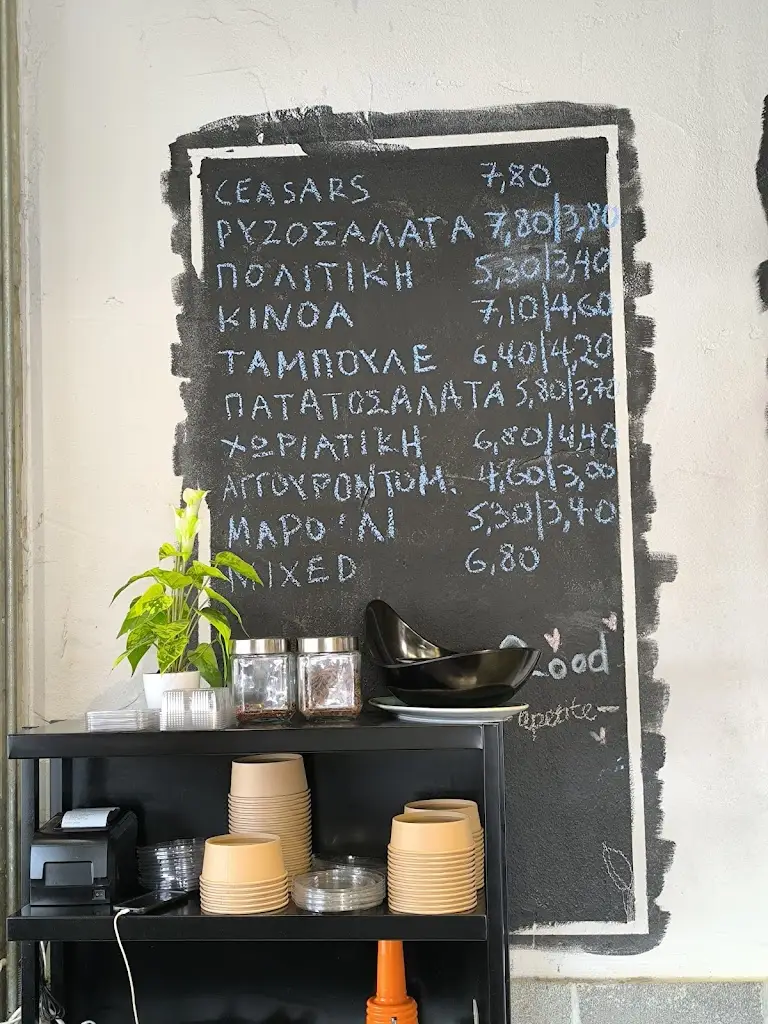 CEASARS 7,80
ΡΥΖΟΣΑΛΑΤΑ 7,80|3,80
ΠΟΛΙΤΙΚΗ 5,30|3,40
ΚΙΝΟΑ 7,10|4,60
ΤΑΜΠΟΥΛΕ 6,40|4,20
ΠΑΤΑΤΟΣΑΛΑΤΑ 5,80|3,70
ΧΩΡΙΑΤΙΚΗ 6,80|4,40
ΑΓΓΟΥΡΟΝΤΟΜ. 4,60|3,00
ΜΑΡΟΎΛΙ 5,30|3,40
MIXED 6,80
Good
apetite